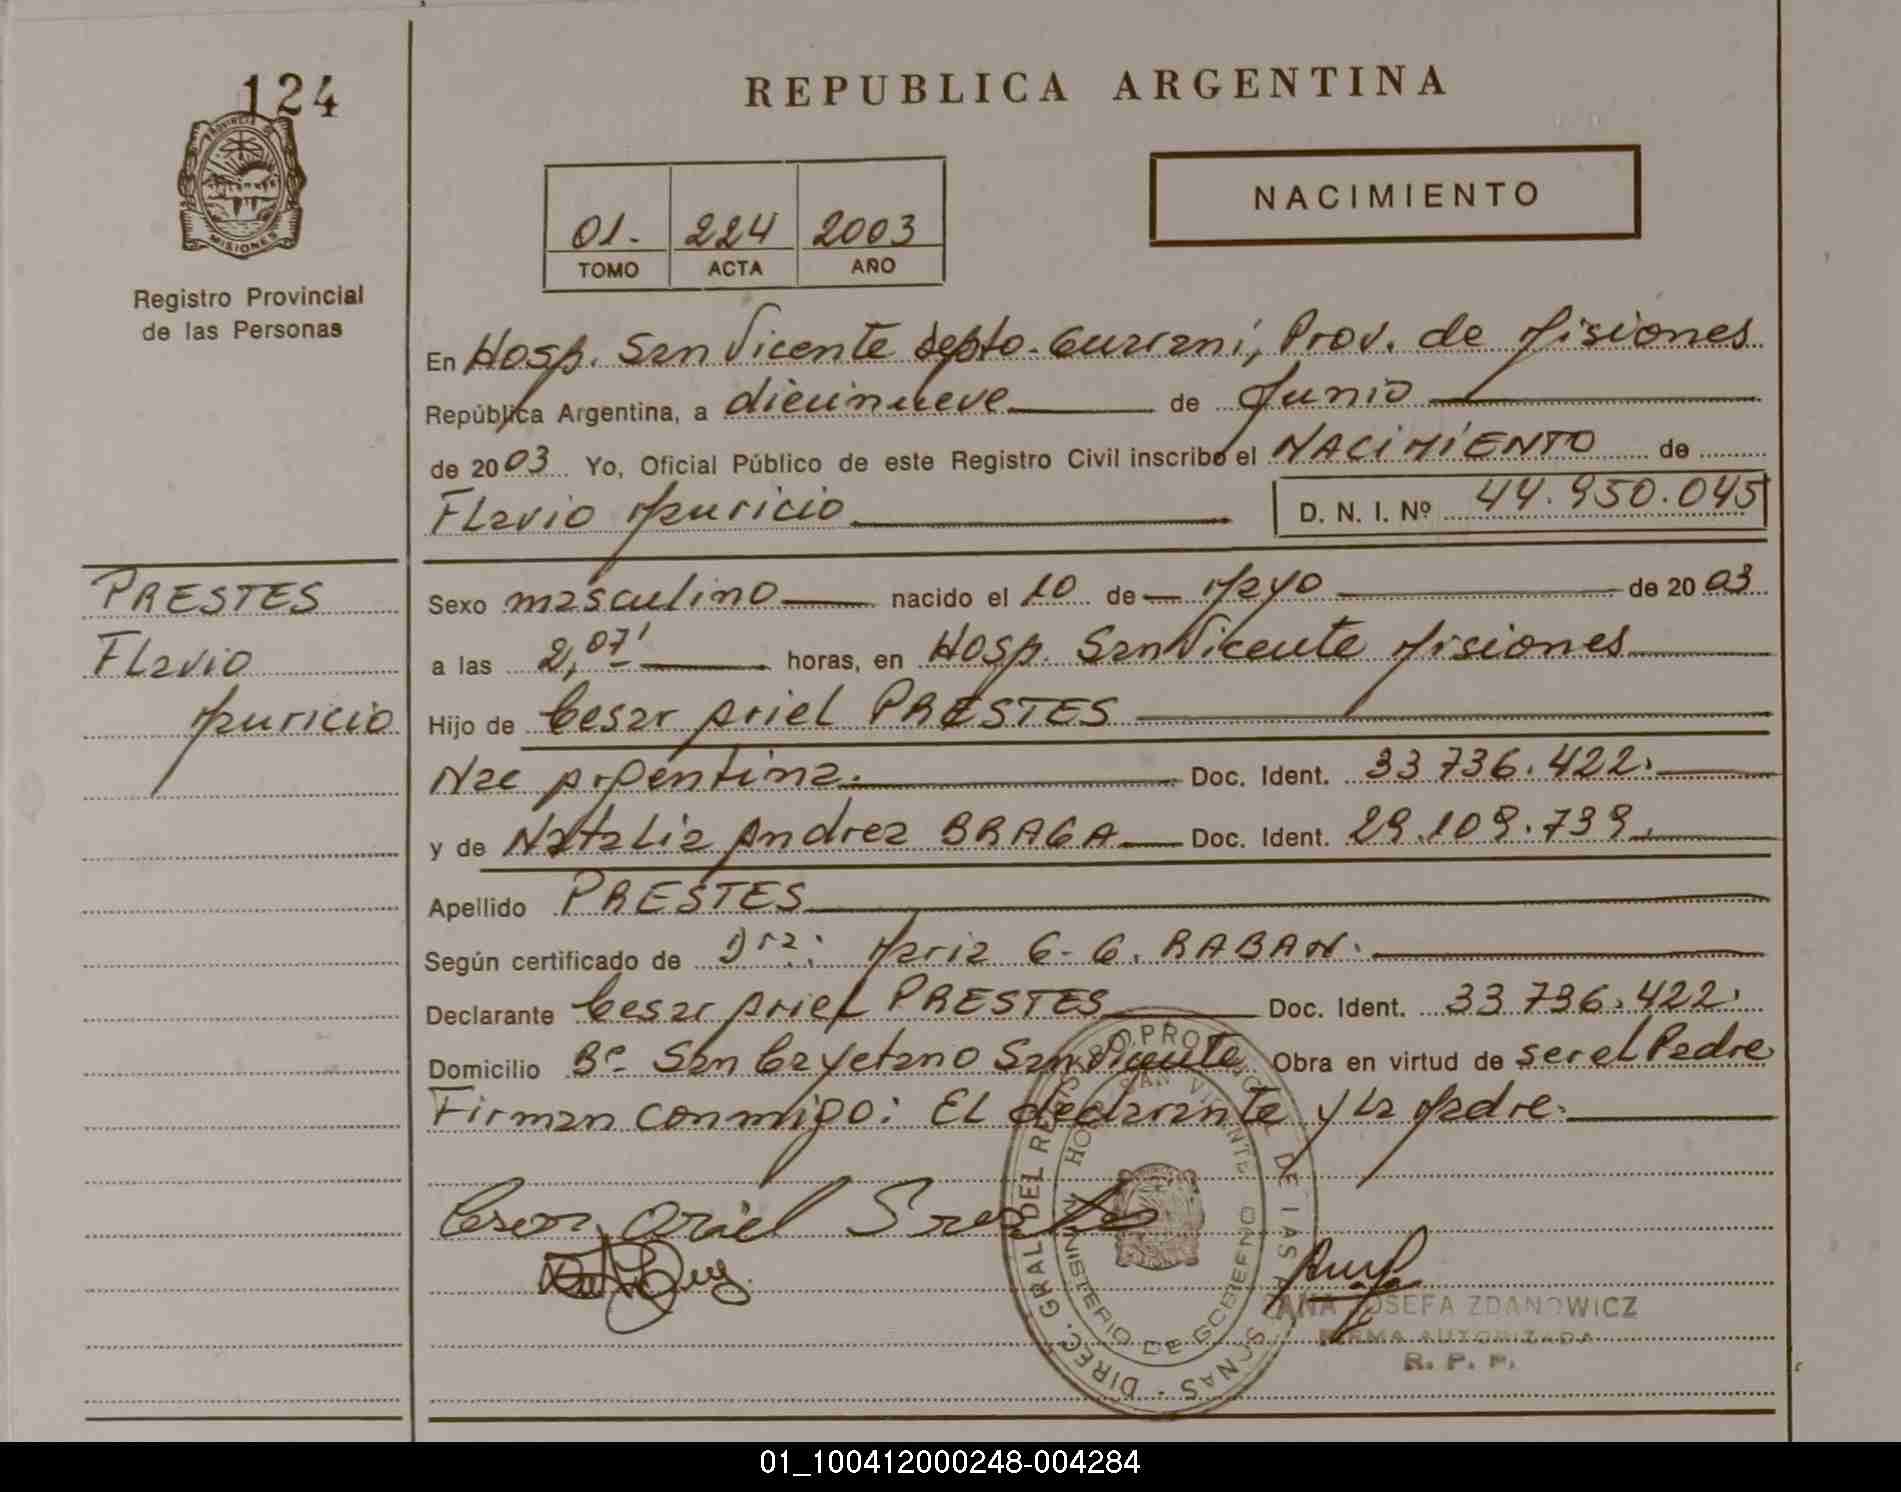 124
PROVINCIA DE
MISIONES
Registro Provincial
de las Personas
REPUBLICA ARGENTINA
01. 224 2003
TOMO ACTA AÑO
NACIMIENTO
En Hosp. San Vicente Depto. Guarani, Prov. de Misiones
República Argentina, a diecinueve de Junio
de 2003 Yo, Oficial Público de este Registro Civil inscribo el NACIMIENTO de
Flavio Mauricio D. N. I. Nº 44.950.045
PRESTES
Flavio
Mauricio
Sexo masculino nacido el 10 de Mayo de 2003
a las 2,07' horas, en Hosp. San Vicente Misiones
Hijo de Cesar Ariel PRESTES
Nac Argentina. Doc. Ident. 33 736.422.
y de Natalia Andrea BRAGA Doc. Ident. 29.109.739.
Apellido PRESTES
Según certificado de Dra: Maria G. G. RABAN.
Declarante Cesar Ariel PRESTES Doc. Ident. 33 736.422.
Domicilio Bº San Cayetano San Vicente Obra en virtud de ser el Padre
Firman conmigo: El declarante y La Madre.
Cesar Ariel Prestes
DIREC. GRAL DEL REGISTRO PROVINCIAL DE LAS PERSONAS
HOSP. SAN VICENTE
MINISTERIO DE GOBIERNO
ANA JOSEFA ZDANOWICZ
FIRMA AUTORIZADA
R. P. P.
01_100412000248-004284